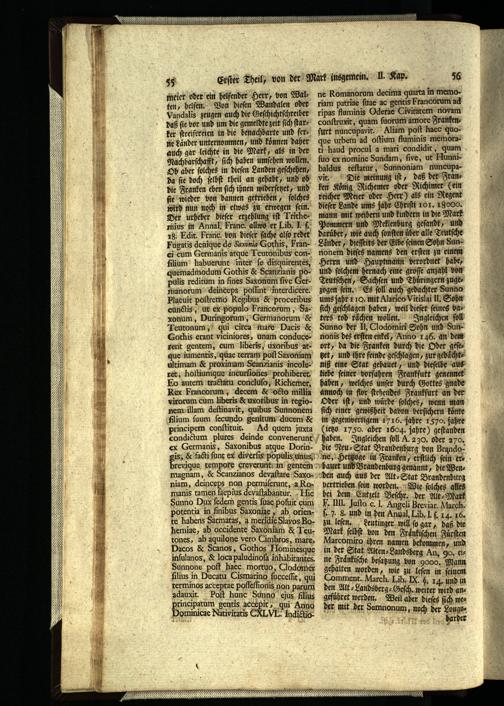 55 Erster Theil, von der Mark insgemein. II. Kap. 56
meier oder ein helfender Herr, von Wal-
ten, helfen. Von diesen Wandalen oder
Vandalis zeugen auch die Geschichtschreiber
daß sie vor und um die gemeldte zeit sich star-
ker streifereien in die benachbarte und fer-
ne Länder unternommen, und können daher
auch gar leichte in die Mark, als in der
Nachbarschafft, sich haben umsehen wollen.
Ob aber solches in diesen Landen geschehen,
da sie doch selbst theil an gehabt, und ob
die Franken eben sich ihnen widersetzet, und
sie wieder von dannen getrieben, solches
wird nun noch in etwas zu erwegen sein.
Der urheber dieser erzehlung ist Trithe-
mius in Annal. Franc. Lib. I. §.
18. Edit. Franc. von dieser sache also redet
Fugatis denique de Saxonia Gothis, Fran-
ci cum Germanis atque Teutonibus con-
silium habuerunt inter se disquirentes,
quemadmodum Gothis & Scanzianis po-
pulis reditum in fines Saxonum sive Ger-
manorum deinceps possint interdicere.
Placuit postremo Regibus & proceribus
cunctis, ut ex populo Francorum, Sa-
xonum, Duringorum, Germanorum &
Teutonum, qui circa mare Dacis &
Gothis erant viciniores, unam conduce-
rent gentem, cum liberis, uxoribus at-
que iumentis, quae terram post Saxoniam
ultimam & proximam Scanzianis incole-
ret, hostiumque incursiones prohiberet.
Eo autem tractatu concluso, Richemer,
Rex Francorum, decem & octo millia
virorum cum liberis & uxoribus in regio-
nem illam destinavit, quibus Sunnonem
filium suum secundo genitum ducem &
principem constituit. Ad quem juxta
condictum plures deinde convenerunt
ex Germanis, Saxonibus atque Dorin-
gis, & facti sunt ex diversis populis unus,
brevique tempore creverunt in gentem
magnam, & Scanzianos devastare Saxo-
niam, deinceps non permiserunt, a Ro-
manis tamen saepius devastabantur. Hic
Sunno Dux sedem gentis suae posuit cum
potentia in finibus Saxoniae, ab orien-
te habens Sarmatas, a meridie Slavos Bo-
hemiae, ab occidente Saxoniam & Teu-
tones, ab aquilone vero Cimbros, mare,
Dacos & Scanos, Gothos Hominesque
insulanos, & loca paludinosa inhabitantes.
Sunnone post haec mortuo, Clodomer
filius in Ducatu Cismarino successit, qui
terminos acceptae possessionis non parum
adauxit. Post hunc Sunno ejus filius
principatum gentis accepit, qui Anno
Dominicae Nativitatis CXLVI. Indictio-
ne Romanorum decima quarta in memo-
riam patriae suae ac gentis Francorum ad
ripas fluminis Oderae Civitatem novam
construxit, quam suorum amore Franken-
furt nuncupavit. Aliam post haec quo-
que urbem ad ostium fluminis memora-
ti haud procul a mari condidit, quam
suo ex nomine Sundam, sive, ut Hunni-
baldus testatur, Sunnoniam nuncupa-
vit. Die meinung ist, daß der Fran-
ken König Richemer oder Richimer (ein
reicher Meier oder Herr) als ein Regent
dieser Lande ums jahr Christi 101. 18000.
mann mit weibern und kindern in die Mark
Pommern und Meklenburg gesandt, und
darüber, wie auch sonsten über alle Teutsche
Länder, diesseits der Elbe seinen Sohn Sun-
nonem dieses namens den ersten zu einem
Herrn und Hauptmann verordnet habe,
und solchem hernach eine grosse anzahl von
Teutschen, Sachsen und Thüringern zuge-
zogen sein. Es soll auch gedachter Sunno
ums jahr 110. mit Alarico Vitislai II. Sohn
sich geschlagen haben, weil dieser seines va-
ters tod rächen wollen. Ingleichen soll
Sunno der II, Clodomiri Sohn und Sun-
nonis des ersten enkel, Anno 146. an dem
ort, da die Franken durch die Oder gese-
tzet, und ihre feinde geschlagen, zur gedächt-
niß eine Stat gebauet, und dieselbe aus
liebe seiner vorfahren Frankfurt genennet
haben, welches unser durch Gottes gnade
annoch in flor stehendes Frankfurt an der
Oder ist, und würde solches, wenn man
sich einer gewißheit davon versichern könte
in gegenwertigem 1716. jahre 1570. jahre
(itzo 1750. aber 1604. jahre) gestanden
haben. Ingleichen soll A. 230. oder 270.
die Neu-Stat Brandenburg von Brando-
ne, Hertzoge in Franken, erstlich sein er-
bauet und Brandenburg genannt, die Wen-
den auch aus der Alt-Stat Brandenburg
vertrieben sein worden. Wie solches alles
bei dem Entzelt Beschr. der Alt-Mark
F. IIII. Justo c. l. Angeli Breviar. March.
f. 7. 8. und in der Annal. Lib. I. f. 14. 16.
zu lesen. Leutinger will so gar, daß die
Mark selbst von den Fränkischen Fürsten
Marcomiro ihren namen bekommen, und
in der Stat Alten-Landsberg An. 90. ei-
ne Fränkische besatzung von 9000. Mann
gehalten worden, wie zu lesen in seinem
Comment. March. Lib. IX. §. 14. und in
den Alt-Landsberg-Gesch. weiter wird an-
geführet werden. Weil aber dieses sich we-
der mit der Semnonum, noch der Longo-
barder